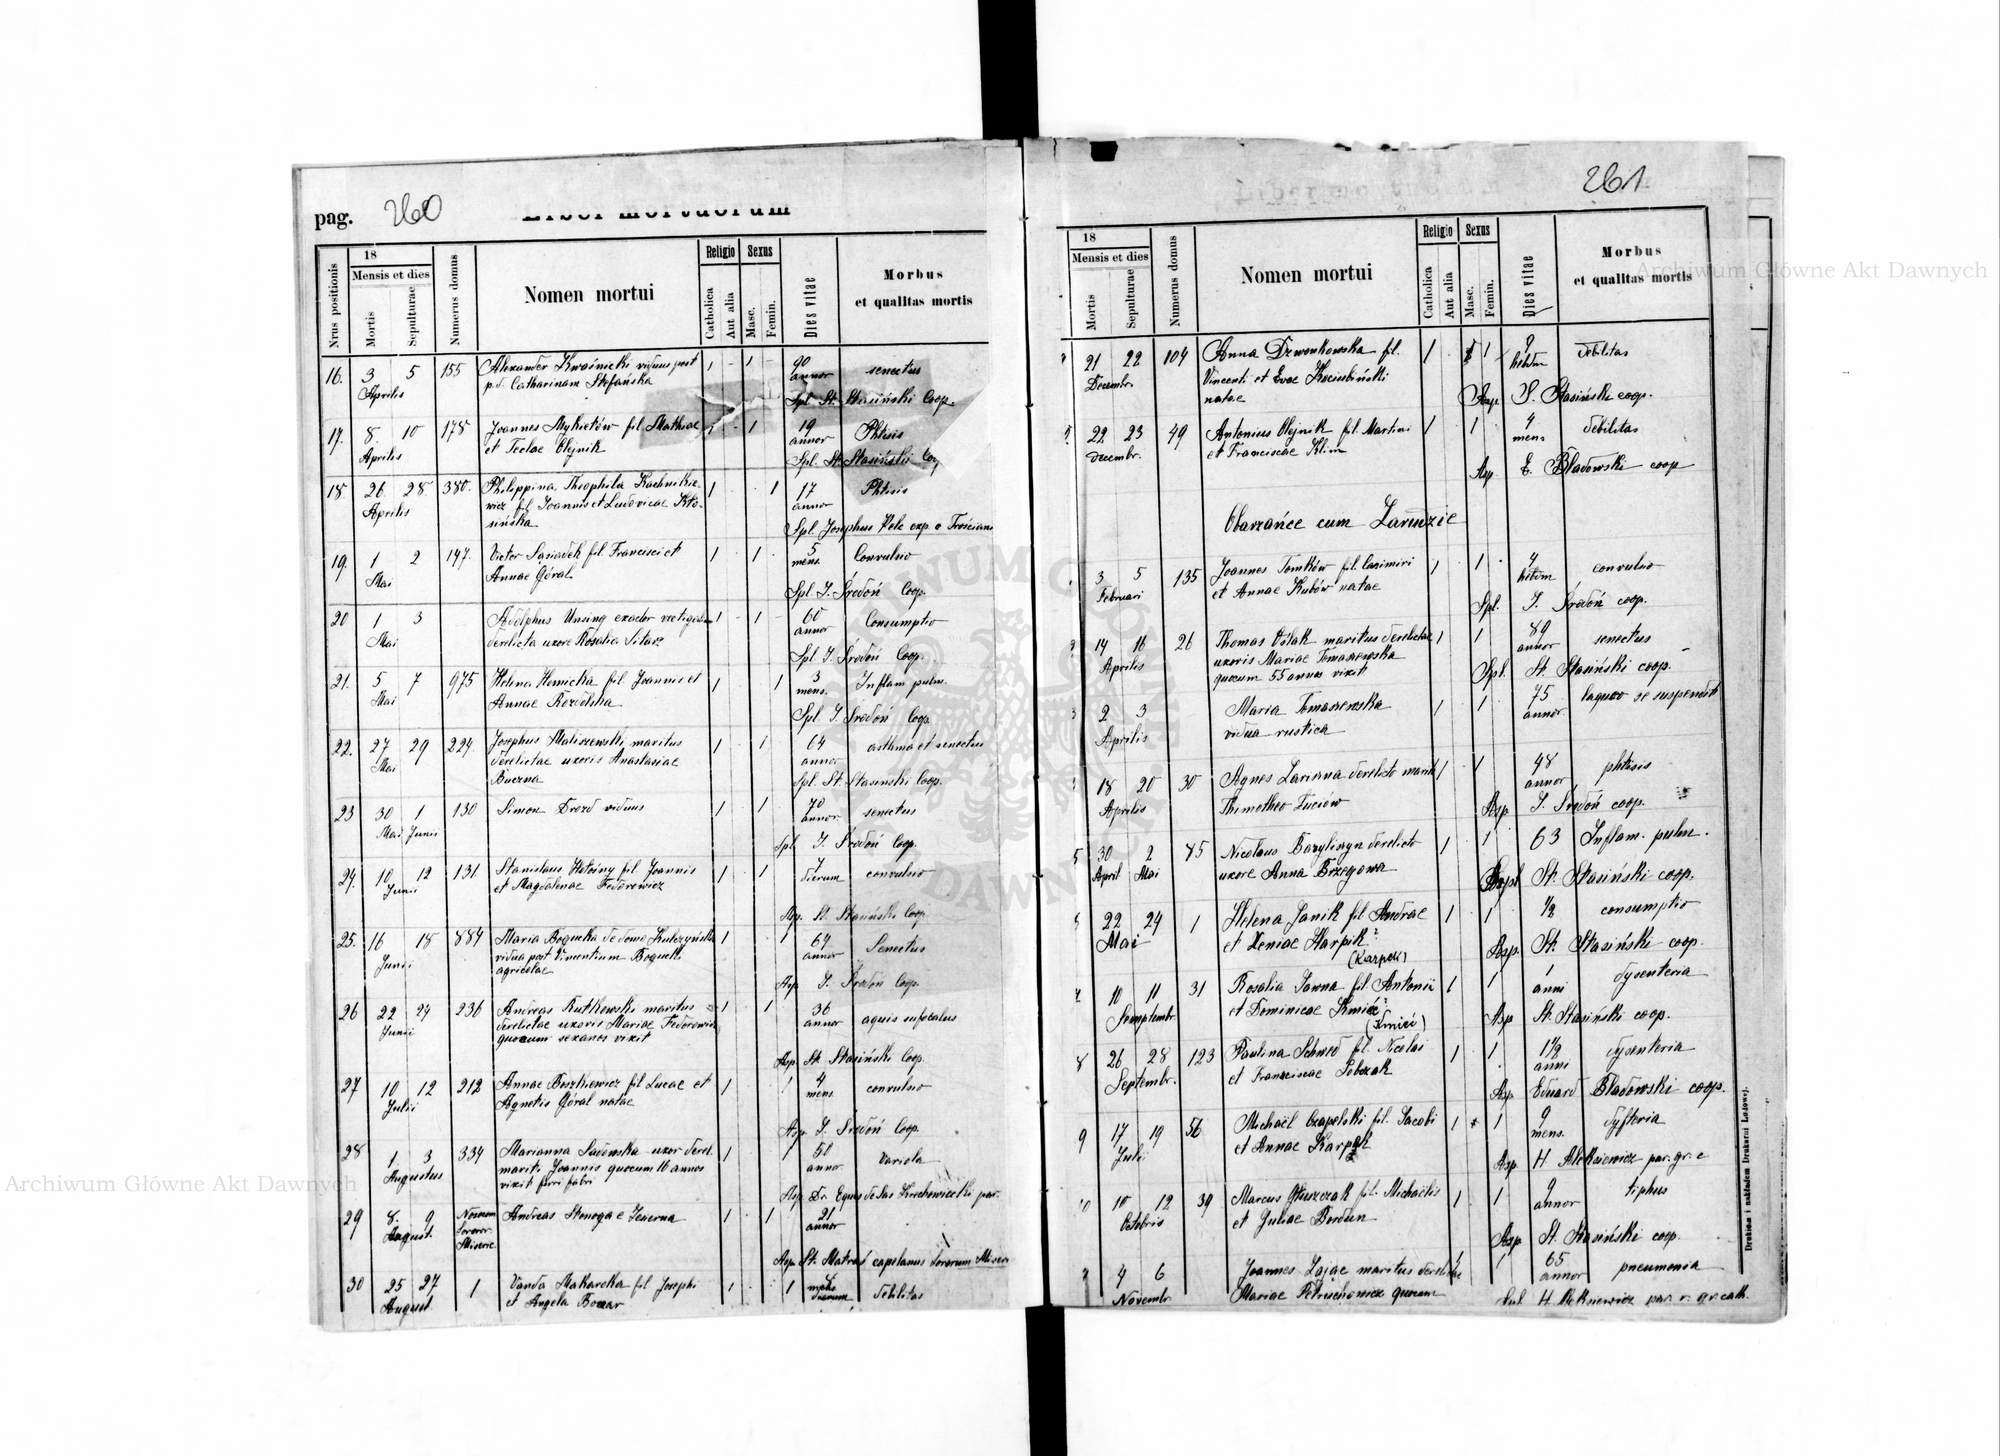 pag. 260
Liber mortuorum
Nrus positionis
18
Mensis et dies
Mortis
Sepulturae
Numerus domus
Nomen mortui
Religio
Catholica
Aut alia
Sexus
Masc.
Femin.
Dies vitae
Morbus
et qualitas mortis
16. 3 5 155 Alexander Kwaśnicki viduus post 1 - 1 90 senectus
Aprilis p.d. Catharinam Stefańska annor
Spl. St. Stasiński Coop.
17. 8. 10 178 Joannes Mykietów fil Mathiae 1 - 1 19 Phtisis
Aprilis et Teclae Olejnik annor
Spl. St. Stasiński
18. 26 28 380. Philippina Theophila 1 1 17 Phtisis
Aprilis wicz fil Joannis et Ludovicae Kło- annor
sińska
Spl. Josephus Pelc exp. e
19. 1 2 147. Victor Sasiadek fil Francisci et 1 1 5 Convulsio
Mai Annae Góral mens.
Spl J. Środoń Coop.
20 1 3 Adolphus Unsing exactor 1 1 60 Consumptio
Mai derelicta uxore Rosalia annor
Spl J. Środoń Coop.
21. 5 7 975 Helena fil Joannis et 1 1 3 Inflam pulm.
Mai Annae Rozdolska mens.
Spl J. Środoń Coop.
22. 27 29 224 Josephus Maliszewski maritus 1 1 64 asthma et senectus
Mai derelictae uxoris Anastasiae annor
Buczna
Spl. St. Stasinski Coop.
23 30 1 130 Simon Drozd viduus 1 1 70 senectus
Mai Junii annor
Spl J. Środoń Coop.
24. 10 12 131 Stanislaus fil Joannis 1 1 7 convulsio
Junii et Magdalenae Fedorowicz dierum
Asp. St. Stasiński Coop.
25. 16 18 884 Maria Bogucka de domo Kulczyńska 1 1 64 Senectus
Junii vidua post Vincentium Bogucki annor
agricolae
Asp J. Środoń Coop.
26 22 24 236 Andreas Rutkowski maritus 1 1 36 aquis sufocatus
Junii derelictae uxoris Mariae Fedorowicz annor
quocum sex anos vixit
Asp St. Stasiński Coop.
27 10 12 212 Annae fil Lucae et 1 1 4 convulsio
Julii Agnetis Góral natae mens.
Asp J. Środoń Coop.
28 1. 3 334 Marianna Sadowska uxor derel. 1 1 50 Variola
Augustus mariti Joannis quocum 16 annos annor
vixit
Asp Dr. Eques de Las par.
29 8. 9 Nosocom Andreas Stonoga e 1 1 21
August. Soror annor
Miseric.
Asp St. capelanus Sororum Miseri
30 25 27 1 Vanda Makarska fil Josephi 1 1 debilitas
August et Angela
261
18
Mensis et dies
Mortis
Sepulturae
Numerus domus
Nomen mortui
Religio
Catholica
Aut alia
Sexus
Masc.
Femin.
Dies vitae
Morbus
et qualitas mortis
21 22 104 Anna Dzwonkowska fil. 1 1 9 debilitas
Decembr. Vincenti et Evae Kociubiński hebdm
natae
Asp S. Stasiński coop.
22 23 49 Antonius Olejnik fil Martini 1 1 4 debilitas
Decembr. et Franciscae Klim mens
Asp. E. Bladowski coop
Obarzańce cum
3 5 135 Joannes Tomków fil Casimiri 1 1 4 convulsio
Februari et Annae Kubów natae hebdm
Spl. J. Środoń coop.
14 16 26 Thomas Ośtak maritus derelictae 1 1 89 senectus
Aprilis uxoris Mariae Tomaszewska annor
quocum 55 annos vixit
Spl. St. Stasiński coop.
2 3 Maria Tomaszewska 1 1 75 laqueo se suspendit
Aprilis vidua rustica annor
18 20 30 Agnes derelicto marito 1 1 48 phtisis
Aprilis Thimotheo annor
Asp J. Środoń coop.
5 30 2 75 Nicolaus derelicto 1 1 63 Inflam. pulm.
April Mai uxore Anna Brzegowa
Aspl St. Stasiński coop.
22 24 1 Helena Janik fil Andrae 1 1 1/2 consumptio
Mai et Xeniae Karpik?
(Karpek)
Asp. St. Stasiński coop.
10 11 31 Rosalia fil Antonii 1 1 1 dysenteria
Semptembr. et Dominicae Kmieć? anni
Asp St. Stasiński coop.
8 26 28 123 Paulina Schmed fil. Nicolai 1 1 1 1/2 dysenteria
Septembr. et Franciscae Sobczak anni
Asp Eduard Bladowski coop.
9 17 19 56 Michaël Czapelski fil. Jacobi 1 1 9 dyfteria
Julii et Annae Karpek mens.
Asp. H. Aleksiewicz par. gr. c
10 12 39 Marcus Głuszczak fil. Michaëlis 1 1 9 tiphus
Octobris et Juliae Bordun annor
Asp St. Stasiński coop.
4 6 Joannes Zając maritus derelictae 1 65 pneumonia
Novembr. Mariae Petruchowicz quocum annor
H. Aleksiewicz par. r. gr. cath.
Drukiem i nakładem Drukarni Ludowej.
Archiwum Główne Akt Dawnych
Archiwum Główne Akt Dawnych
ARCHIWUM GŁÓWNE AKT DAWNYCH